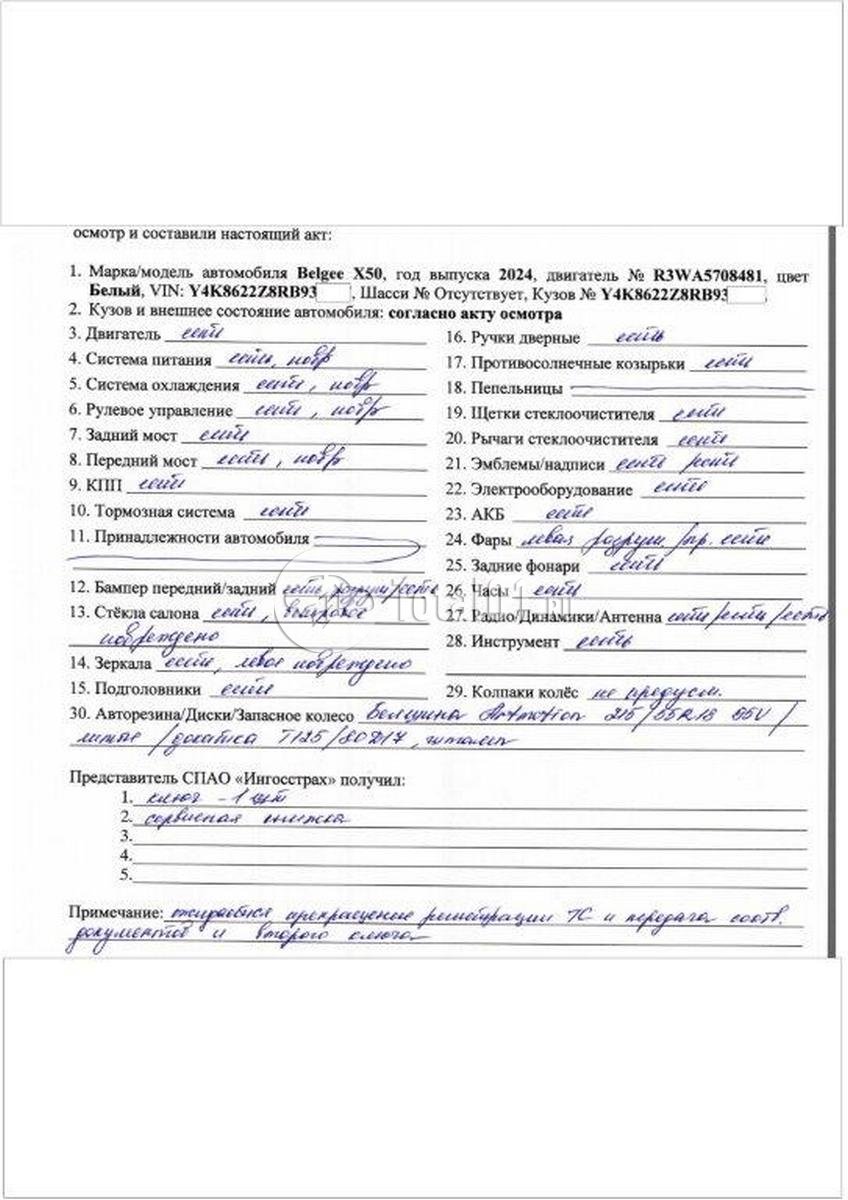 осмотр и составили настоящий акт:
1. Марка/модель автомобиля Belgee X50, год выпуска 2024, двигатель № R3WA5708481, цвет
Белый, VIN: Y4K8622Z8RB93 , Шасси № Отсутствует, Кузов № Y4K8622Z8RB93
2. Кузов и внешнее состояние автомобиля: согласно акту осмотра
3. Двигатель есть
4. Система питания есть, повр
5. Система охлаждения есть, повр
6. Рулевое управление есть, повр
7. Задний мост есть
8. Передний мост есть, повр
9. КПП есть
10. Тормозная система есть
11. Принадлежности автомобиля
12. Бампер передний/задний есть, разруш/есть
13. Стёкла салона есть, ветровое
повреждено
14. Зеркала есть, левое повреждено
15. Подголовники есть
16. Ручки дверные есть
17. Противосолнечные козырьки есть
18. Пепельницы
19. Щетки стеклоочистителя есть
20. Рычаги стеклоочистителя есть
21. Эмблемы/надписи есть/есть
22. Электрооборудование есть
23. АКБ есть
24. Фары левая разруш/пр. есть
25. Задние фонари есть
26. Часы есть
27. Радио/Динамики/Антенна есть/есть/есть
28. Инструмент есть
29. Колпаки колёс не предусм.
30. Авторезина/Диски/Запасное колесо Белшина Artmotion 215/55R18 95V/
литые/докатка T125/80D17, штамп
Представитель СПАО «Ингосстрах» получил:
1. ключ - 1 шт
2. сервисная книжка
3.
4.
5.
Примечание: ожидается прекращение регистрации ТС и передача соотв.
документов и второго ключа